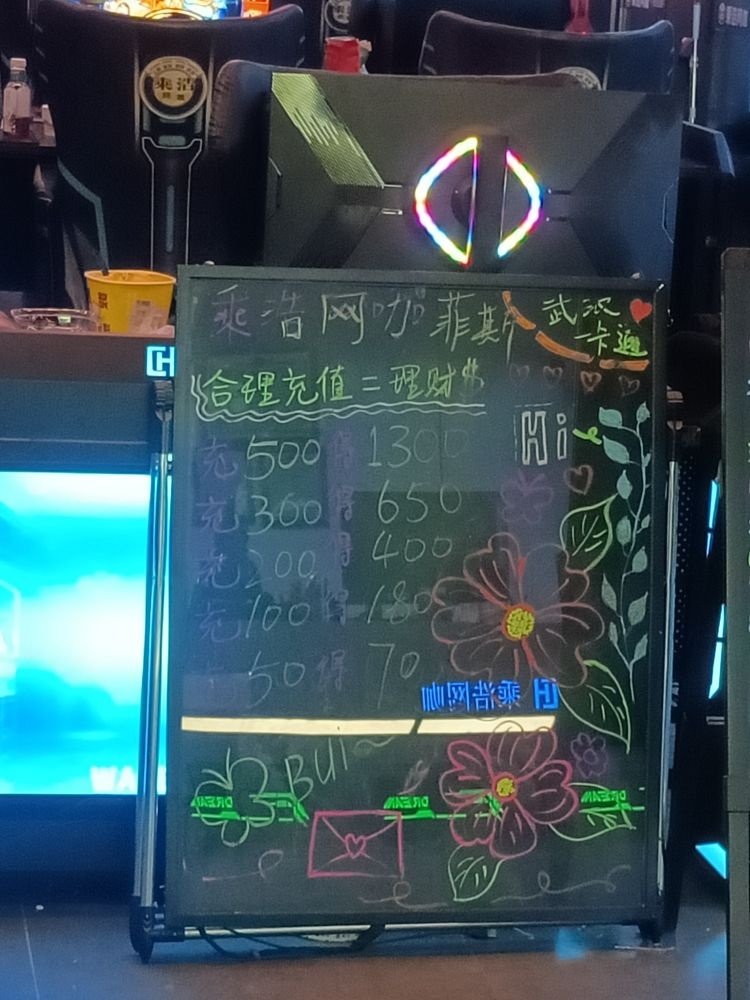 乘浩
网咖
乘浩网咖菲斯
武汉
卡通
合理充值=理财
Hi
充500得1300
充300得650
充200得400
充100得180
充50得70
乘浩网咖
DREAM
DREAM
DREAM